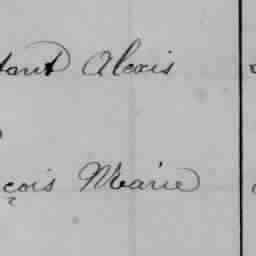 tant Alexis
çois Marie